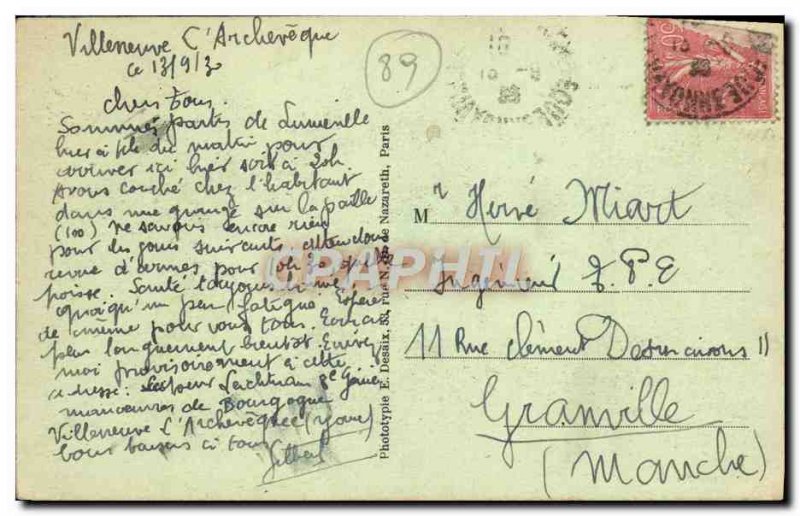 Villeneuve l'Archevêque
ce 13/9/30
89
chers tous.
Sommes partis de Lunéville
hier à du matin pour
arriver ici hier soir à 20h
Avons couché chez l'habitant
dans une grange sur la paille
(100) ne savons encore rien
pour les jours suivants attendons
revue d'armes pour
Santé toujours
quoiqu'un peu fatigué. Espère
de même pour vous tous. Écrirai
plus longuement bientôt. Envoyez
moi provisoirement à cette
adresse: 8e Génie
manoeuvres de Bourgogne
Villeneuve l'Archevêque (Yonne)
bons baisers à tous
Phototypie E. Desaix, rue N.-D. de Nazareth, Paris
CPAPHIL
Mr Hervé Miart
Ingénieur T.P.E
11 Rue Clément Desmaisons 11
Granville
(Manche)